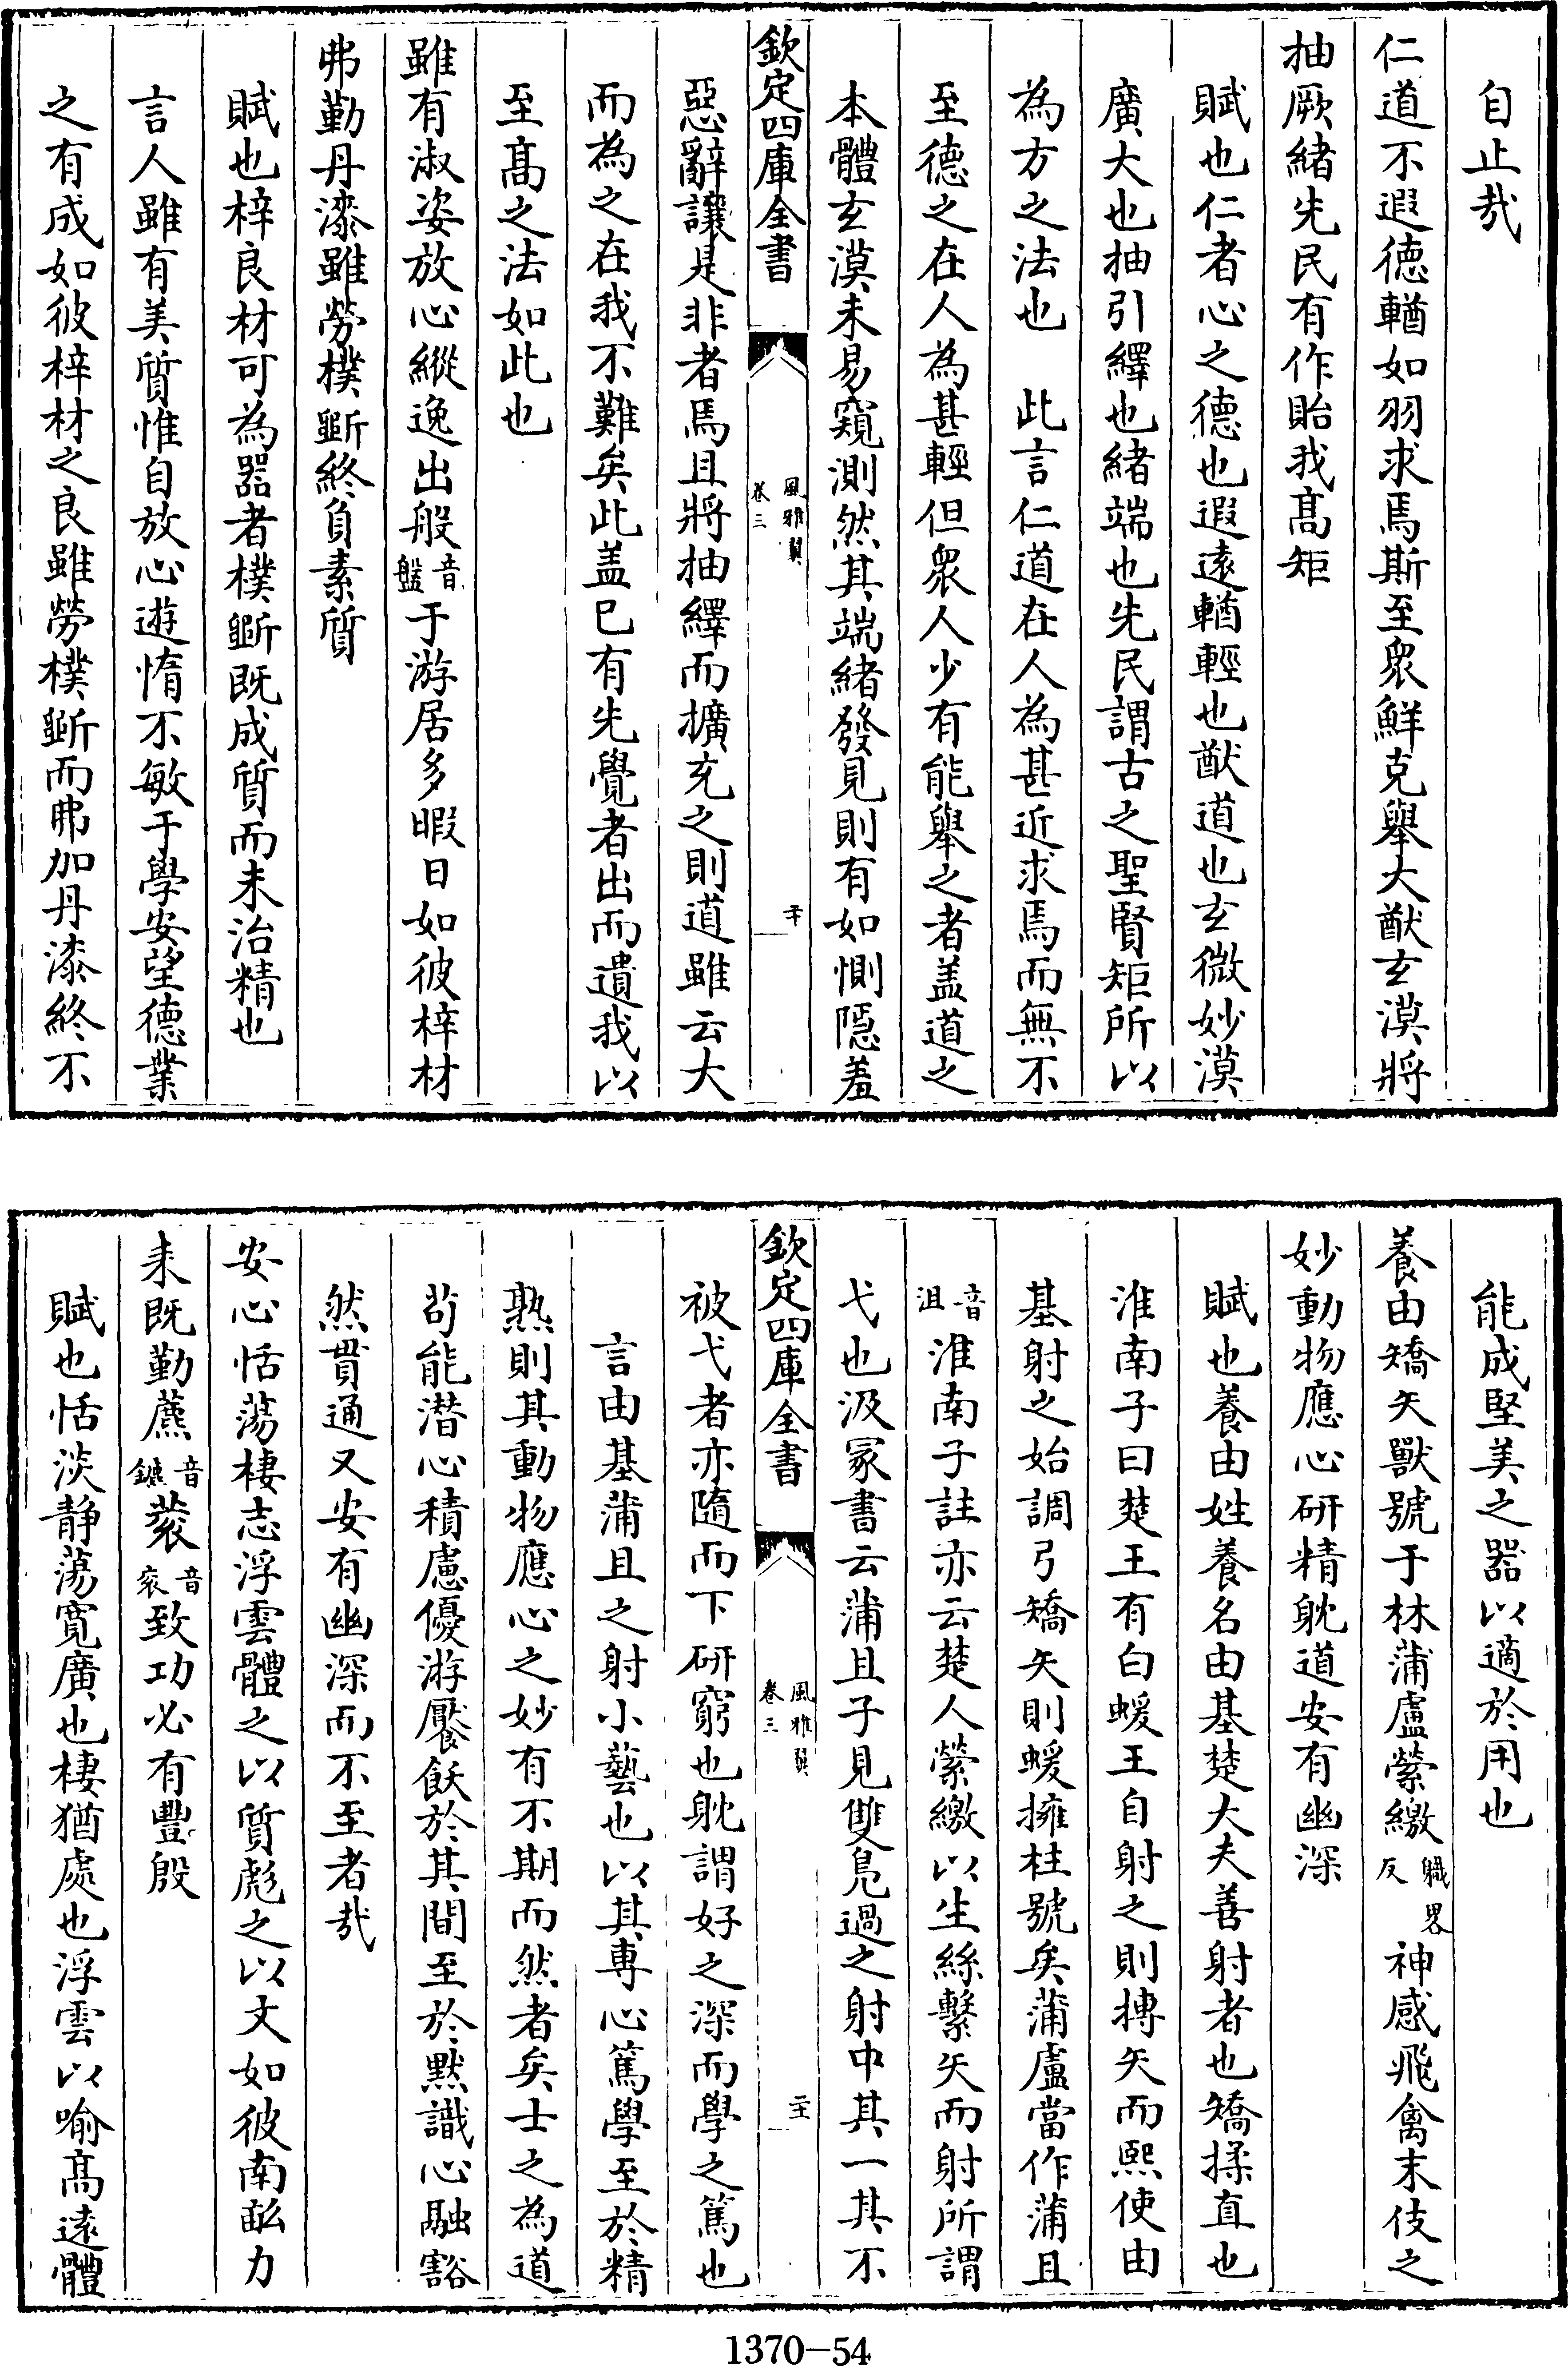 自止哉
仁道不遐德輶如羽求焉斯至衆鮮克舉大猷玄漠將
抽厥緒先民有作貽我髙矩
賦也仁者心之德也遐逺輶輕也猷道也玄微妙漠
廣大也抽引繹也緒端也先民謂古之聖賢矩所以
為方之法也　此言仁道在人為甚近求焉而無不
至德之在人為甚輕但衆人少有能舉之者盖道之
本體玄漠未易窺測然其端緒發見則有如惻隠羞
欽定四庫全書　風雅翼　卷三　二十
惡辭讓是非者焉且將抽繹而擴充之則道雖云大
而為之在我不難矣此盖已有先覺者出而遺我以
至髙之法如此也
雖有淑姿放心縱逸出般音盤于游居多暇日如彼梓材
弗勤丹漆雖勞樸斲終負素質
賦也梓良材可為器者樸斲既成質而未治精也
言人雖有美質惟自放心遊惰不敏于學安望德業
之有成如彼梓材之良雖勞樸斲而弗加丹漆終不
能成堅美之器以適於用也
養由矯矢獸號于林蒲盧縈繳職畧反神感飛禽末伎之
妙動物應心研精躭道安有幽深
賦也養由姓養名由基楚大夫善射者也矯揉直也
淮南子曰楚王有白蝯王自射之則搏矢而熙使由
基射之始調弓矯矢則蝯擁柱號矣蒲盧當作蒲且
音沮淮南子註亦云楚人縈繳以生絲繫矢而射所謂
弋也汲冡書云蒲且子見雙鳬過之射中其一其不
欽定四庫全書　風雅翼　卷三　二十一
被弋者亦隨而下研窮也躭謂好之深而學之篤也
言由基蒲且之射小藝也以其專心篤學至於精
熟則其動物應心之妙有不期而然者矣士之為道
茍能潛心積慮優游饜飫於其間至於黙識心融豁
然貫通又安有幽深而不至者哉
安心恬蕩棲志浮雲體之以質彪之以文如彼南畝力
耒既勤藨音鑣蔉音衮致功必有豐殷
賦也恬淡静蕩寛廣也棲猶處也浮雲以喻髙逺體
1370-54